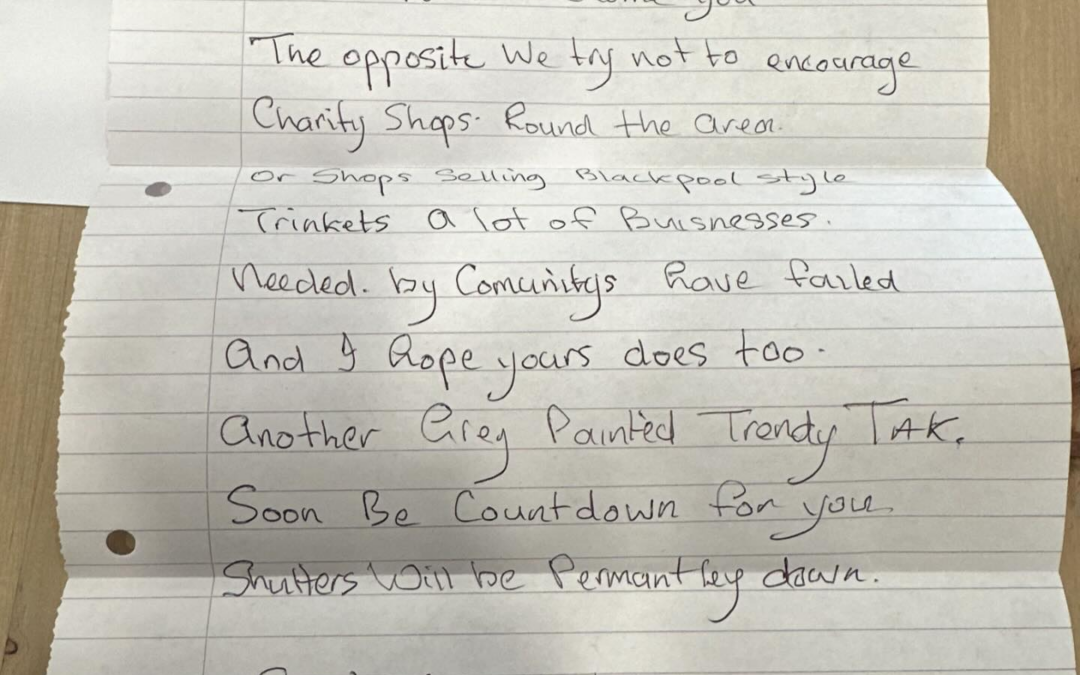 you
The opposite We try not to encourage
Charity Shops. Round the area.
Or Shops Selling Blackpool style
Trinkets a lot of Buisnesses.
Needed. by Comunitys have failed
and I hope yours does too.
another Grey Painted Trendy TAK.
Soon Be Countdown for you.
Shutters Will be Permantley down.